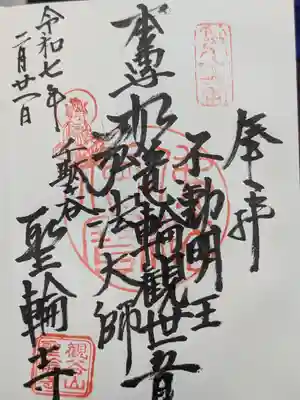 奉拝
不動明王
本尊如意輪觀世音
弘法大師
千駄谷
聖輪寺
令和七年
二月廿一日
觀谷山
聖輪寺